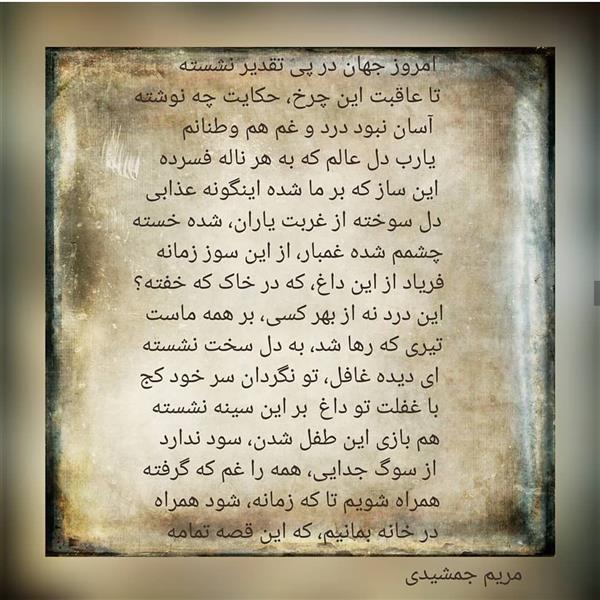 امروز جهان در پی تقدیر نشسته
تا عاقبت این چرخ، حکایت چه نوشته
آسان نبود درد و غم هم وطنانم
یارب دل عالم که به هر ناله فسرده
این ساز که بر ما شده اینگونه عذابی
دل سوخته از غربت یاران، شده خسته
چشمم شده غمبار، از این سوز زمانه
فریاد از این داغ، که در خاک که خفته؟
این درد نه از بهر کسی، بر همه ماست
تیری که رها شد، به دل سخت نشسته
ای دیده غافل، تو نگردان سر خود کج
با غفلت تو داغ بر این سینه نشسته
هم بازی این طفل شدن، سود ندارد
از سوگ جدایی، همه را غم که گرفته
همراه شویم تا که زمانه، شود همراه
در خانه بمانیم، که این قصه تمامه
مریم جمشیدی